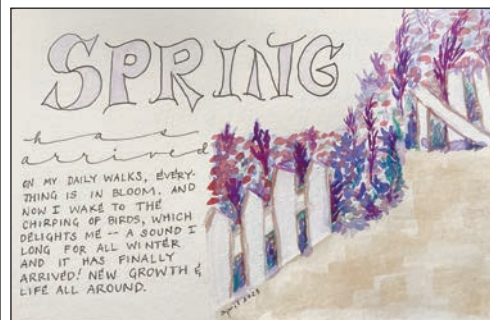 SPRING
has
arrived
ON MY DAILY WALKS, EVERY-
THING IS IN BLOOM. AND
NOW I WAKE TO THE
CHIRPING OF BIRDS, WHICH
DELIGHTS ME -- A SOUND I
LONG FOR ALL WINTER
AND IT HAS FINALLY
ARRIVED! NEW GROWTH &
LIFE ALL AROUND.
april 2023